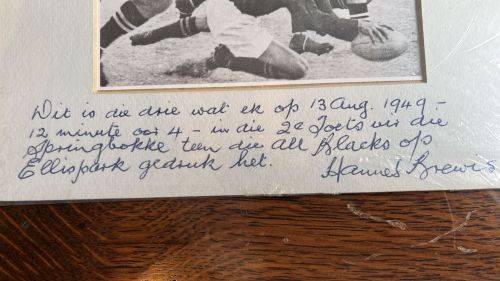 Dit is die drie wat ek op 13 Aug. 1949 -
12 minute oor 4 - in die 2e Toets vir die
Springbokke teen die All Blacks op
Ellispark gedruk het. Hannes Brewis